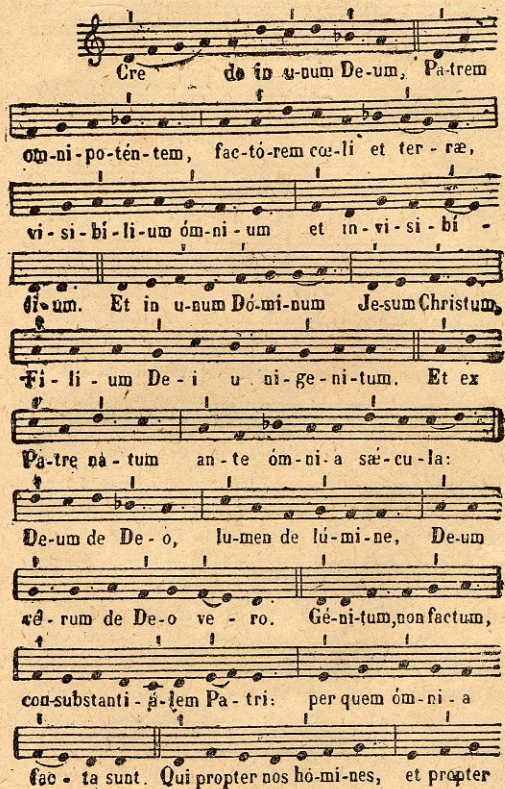 Cre do in u-num De-um, Pa-trem
om-ni-po-tén-tem, fac-tó-rem cœ-li et ter-ræ,
vi-si-bí-li-um óm-ni-um et in-vi-si-bí-
li-um. Et in u-num Dó-mi-num Je-sum Christum,
Fi-li-um De-i u ni-ge-ni-tum. Et ex
Pa-tre na-tum an-te óm-ni-a sæ-cu-la:
De-um de De-o, lu-men de lú-mi-ne, De-um
ve-rum de De-o ve-ro. Gé-ni-tum, non factum,
con-substanti-a-lem Pa-tri: per quem óm-ni-a
fac-ta sunt. Qui propter nos hó-mi-nes, et propter